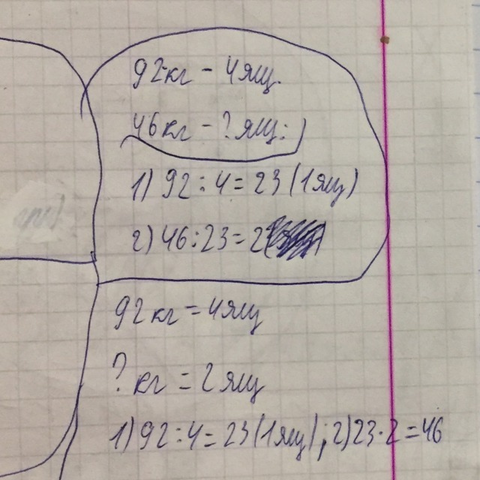 92кг - 4ящ.
46кг - ? ящ.
1) 92 : 4 = 23 (1ящ)
2) 46 : 23 = 2
92кг = 4ящ
? кг = 2ящ
1) 92 : 4 = 23 (1ящ) ; 2) 23 · 2 = 46